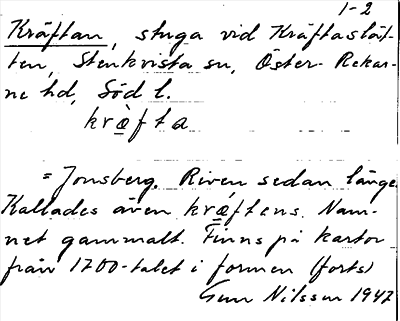 1-2
Kräftan, stuga vid Kräftaslät-
ten, Stenkvista sn, Öster-Rekar-
ne hd, Söd l.
kræ̀fta
= Jonsberg. Riven sedan länge.
Kallades även kræ̀ftens. Nam-
net gammalt. Finns på kartor
från 1700-talet i formen (forts)
Gun Nilsson 1947